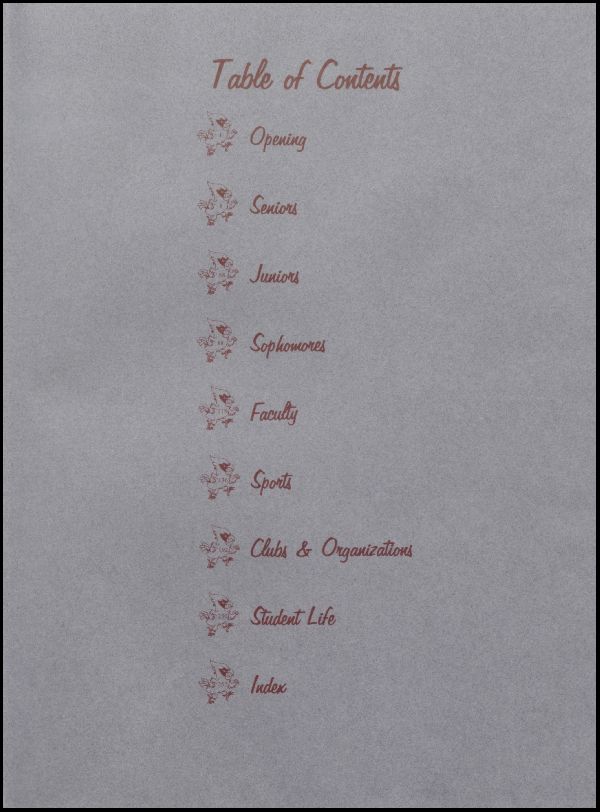 Table of Contents
Opening
Seniors
Juniors
Sophomores
Faculty
Sports
Clubs & Organizations
Student Life
Index